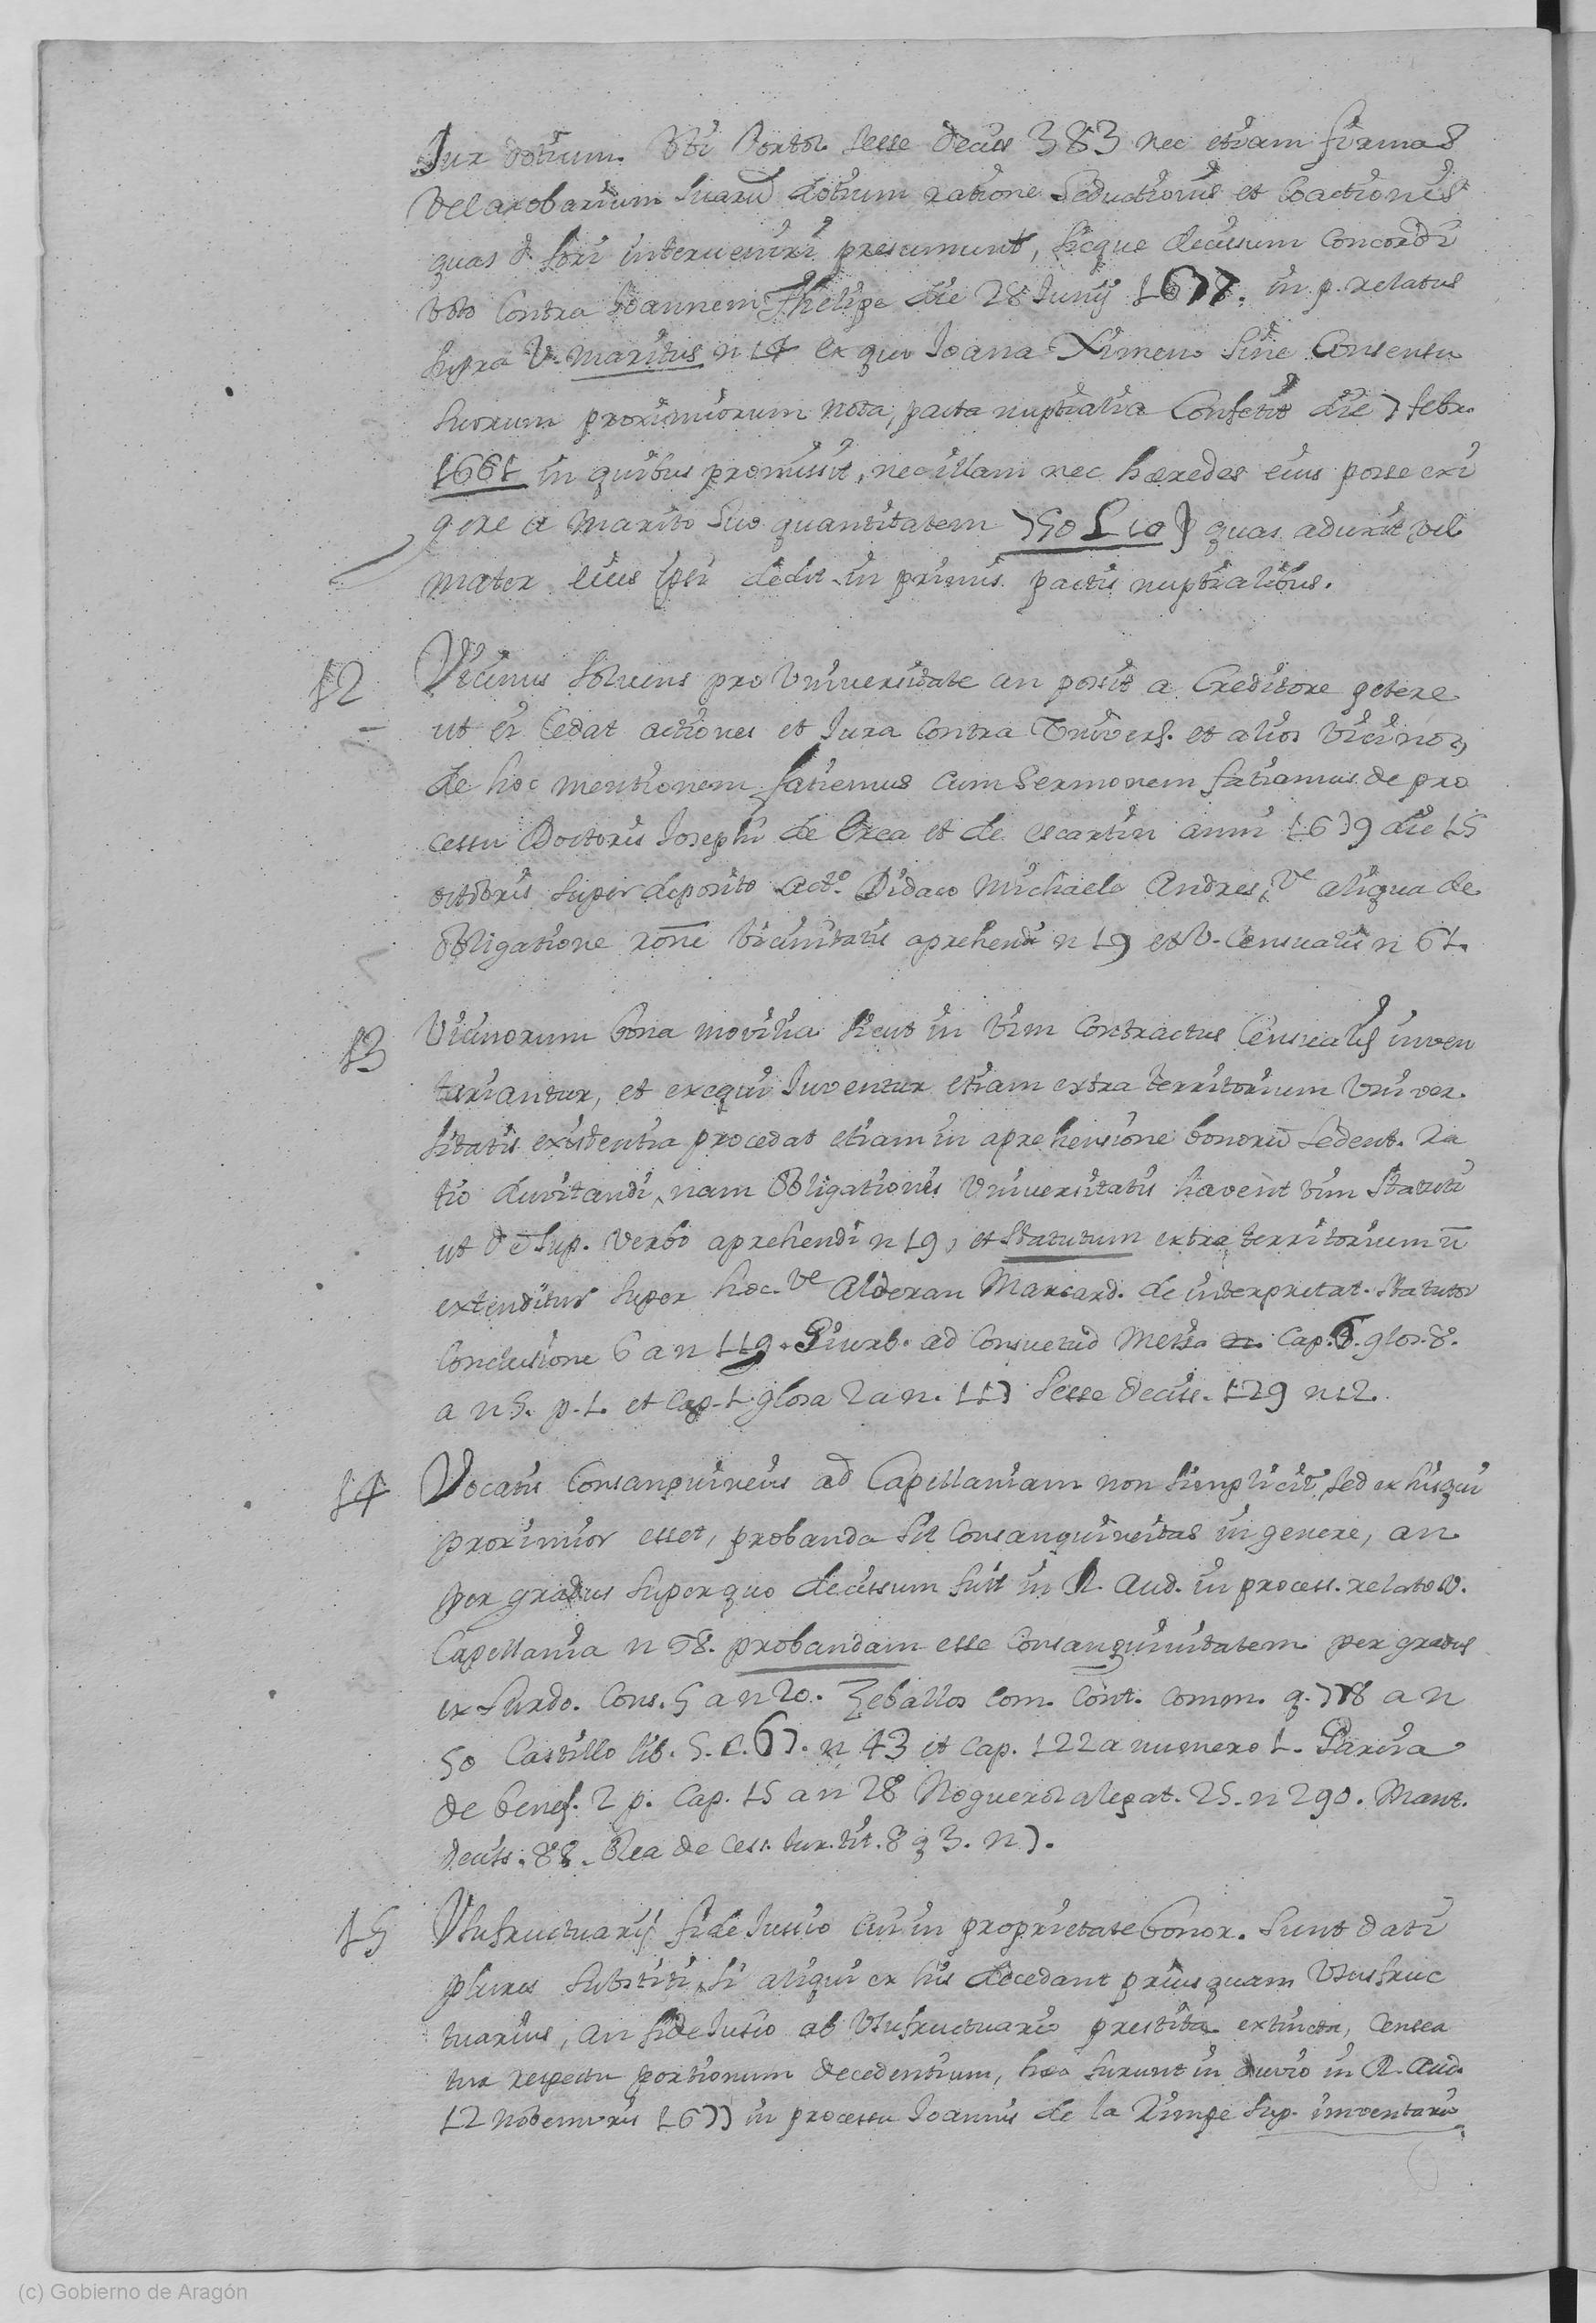 Jur dotium. Vbi Portol. Sesse decis 383 nec etiam firmas
vel axobarium suarū dotium ratione Seductionis et Coactionis
quas d. fori interueniri presumunt, sicque decisum Concordi
voto Contra Ioannem Phelipe die 28 Iunij 1677. in p. relatus
supra V. maritus n 14 ex quo Ioana Ximeno Sine Consensu
suorum proximiorum nota, pacta nuptialia Confetit die 7 febr.
1661 in quibus promissit, nec illam nec hæredes eius posse exi
gere a marito suo quantitatem 750 L 10 quas aduxit vel
mater eius ipsi dedit in primis pactis nuptialibus.
12 Vicinus Soluens pro Vniuersitate an possit a Creditore petere
ut ei Cedat actiones et Iura Contra Vnivers. et alios Vicinos,
de hoc mentionem fatiemus Cum Sermonem fatiamus de pro
cessu Doctoris Iosephi de Orea et de escartin anni 1679 die 15
octobris super deposito act.º Didaco Michaele Andres, Ve aliqua de
Obligatione rōne Vicinitatis aprehendi n 19 et V. Censualis n 61.
13 Vicinorum bona movilia sicut in vim Contractus Censualis inven
tariantur, et exequi Iuventur etiam extra territorium Vniver.
sitatis existentia procedat etiam in aprehensione bonorū Sedent. Ra
tio duvitandi, nam Obligationes Vniversitatis havent vim Statuti
ut de sup. verbo aprehendi n 19, et Statutum extra territorium n̄
extenditur super hoc. Ve Alderan Mascard. de interpretat. Statutor
Conclusione 6 a n 119. Giurb. ad Consuetud Messa Cap. 6. glos. 8.
a n 5. p. 1. et Cap. 1. glosa 2 a n. 117 Sesse deciss. 129 n 12.
14 Vocatus Consanguineus ad Capellaniam non Simplicit̄, Sed ex his qui
proximior esset, probanda sit Consanguineitas in genere, an
per gradus super quo decissum fuit in R. Aud. in process. relato V.
Capellania n 58. probandam esse Consanguinitatem per gradus
ex Surdo. Cons. 5 a n 20. Zeballos Com. Cont. Comm. q. 778 a n
50 Castillo lib. 5. C. 67. n 43 et Cap. 122 a numero 1. Garcia
de benef. 2 p. Cap. 15 a n 28 Noguerol alegat. 25. n 290. Mant.
deciss. 88. Olea de Cess. Iur. tit. 8 q 3. n 7.
15 Vsufructuarij fide Iussio Cui in proprietate bonor. Sunt dati
plures Substituti, si aliqui ex his decedant priusquam Vsusfruc
tuarius, an fide Iusio ab Vsufructuario prestita extincta, Censea
tur respectu portionum decedentium, hoc furunt in duvio in R. Aud.
12 Nobemvris 1677 in processu Ioannis de la Rimpe sup. inventario